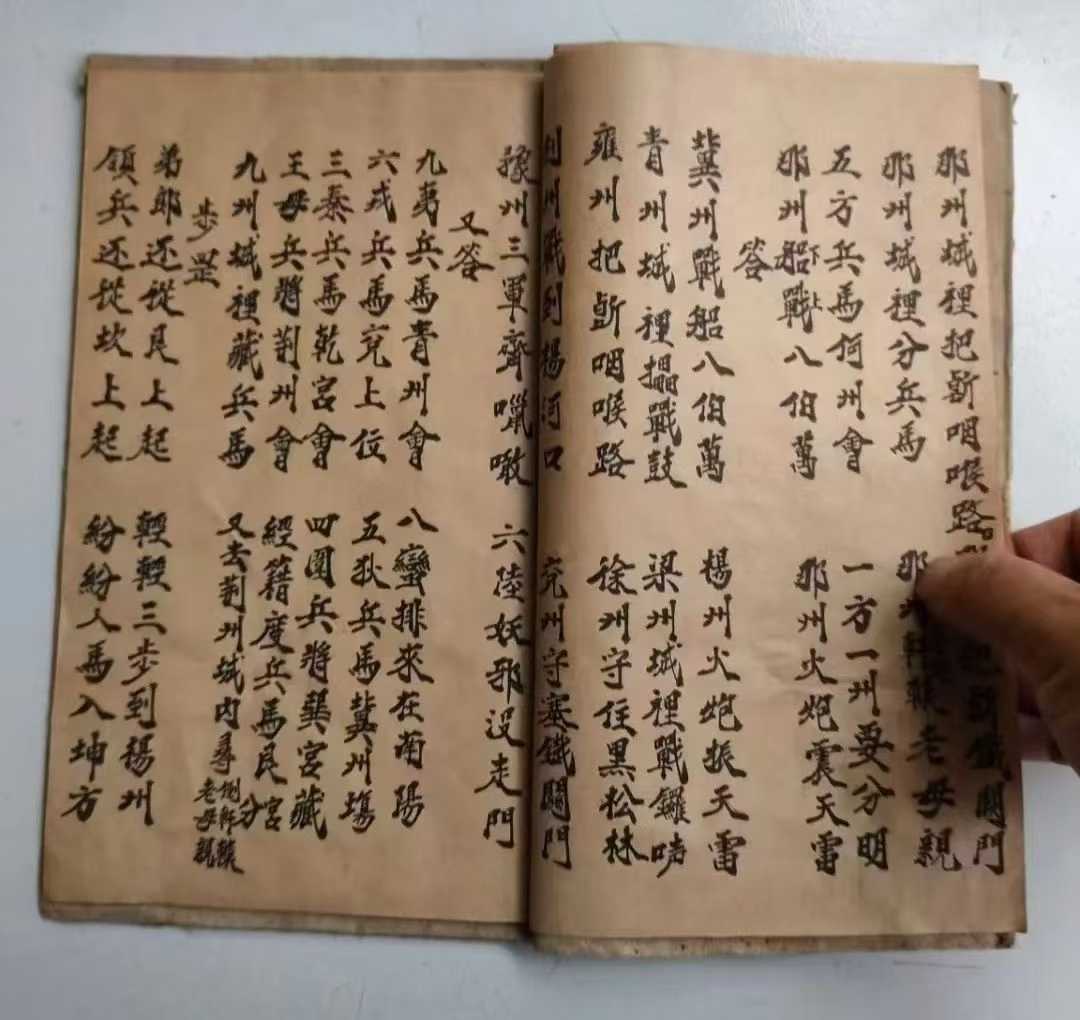 那州城裡把斷咽喉路 鐵關門
那州城裡分兵馬 那州 老母親
五方兵馬何州會 一方一州要分明
那州船戰八伯萬 那州火炮震天雷
下 上
答
冀州戰船八伯萬 楊州火炮振天雷
青州城裡擂戰鼓 梁州城裡戰鑼
雍州把斷咽喉路 徐州守住黑松林
州戰到楊河口 兗州守塞鐵關門
豫州三軍齊 六陸妖邪沒走門
又答
九夷兵馬青州會 八蠻排來在南陽
六戎兵馬兌上位 五狄兵馬冀州塲
三秦兵馬乾宮會 四圍兵將巽宮藏
王母兵將荆州會 經籍度兵馬艮宮分
九州城裡藏兵馬 又去荆州城内尋 老母親
步罡
弟郎还從艮上起 輕輕三步到楊州
領兵还從坎上起 紛紛人馬入坤方